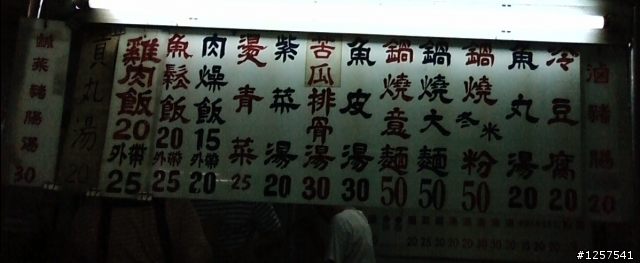 鹹菜豬腸湯 30
貢丸湯 20
雞肉飯 20 外帶 25
魚鬆飯 20 外帶 25
肉燥飯 15 外帶 20
燙青菜 25
紫菜湯 20
苦瓜排骨湯 30
魚皮湯 30
鍋燒意麵 50
鍋燒大麵 50
鍋燒冬粉 米 50
魚丸湯 20
冷豆腐 20
滷豬腸 20
#1257541